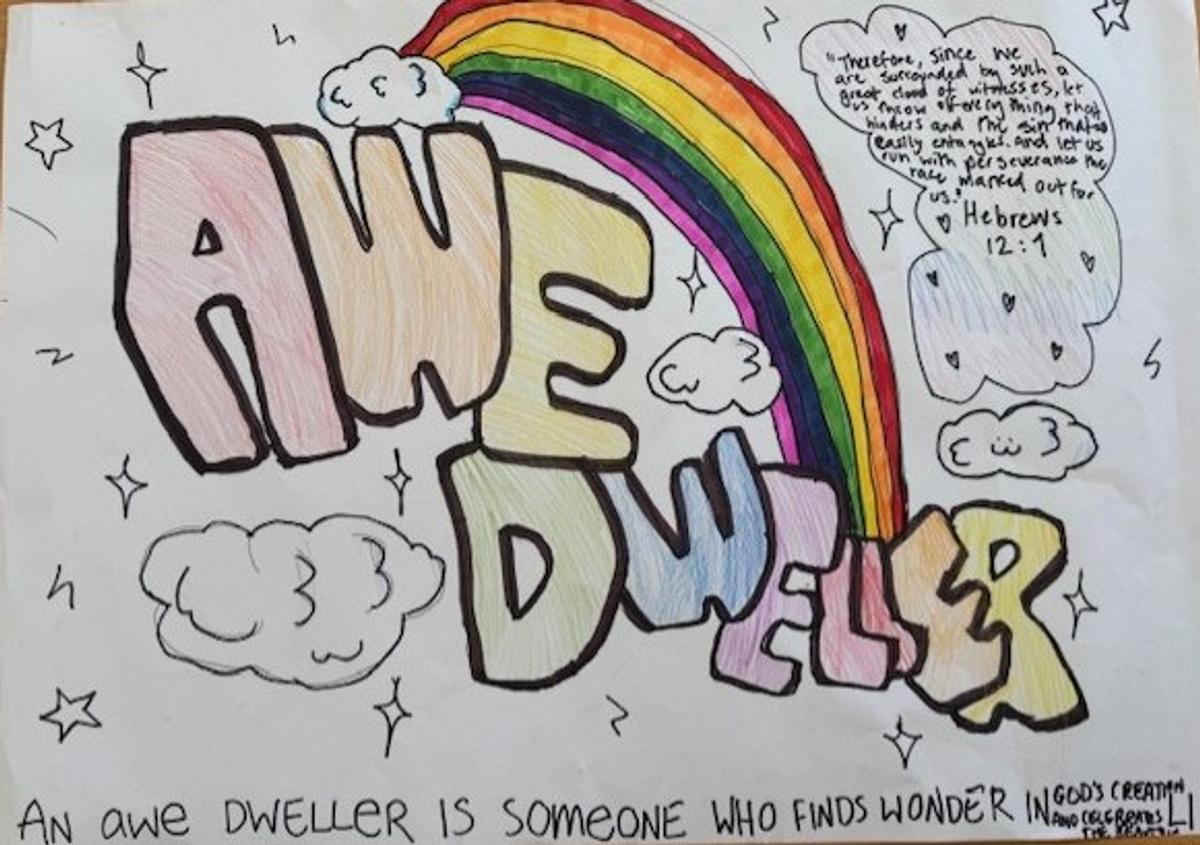 AWE
DWELLER
"Therefore, since we
are surrounded by such a
great cloud of witnesses, let
us throw off everything that
hinders and the sin that so
easily entangles. And let us
run with perseverance the
race marked out for
us."
Hebrews
12:1
AN awe DWELLER IS SOMEONE WHO FINDS WONDER IN
GOD'S CREATION
AND CELEBRATES
THE
LI